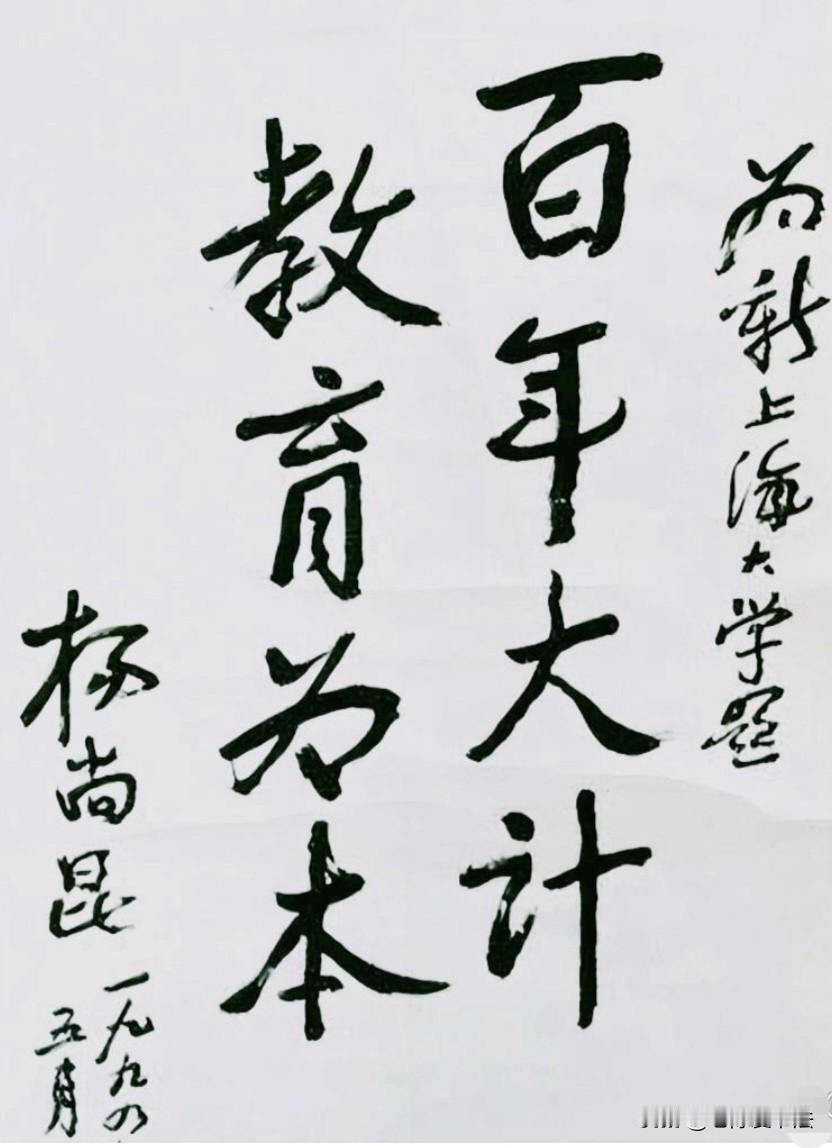 为新上海大学题
百年大计
教育为本
杨尚昆
一九九四
五月